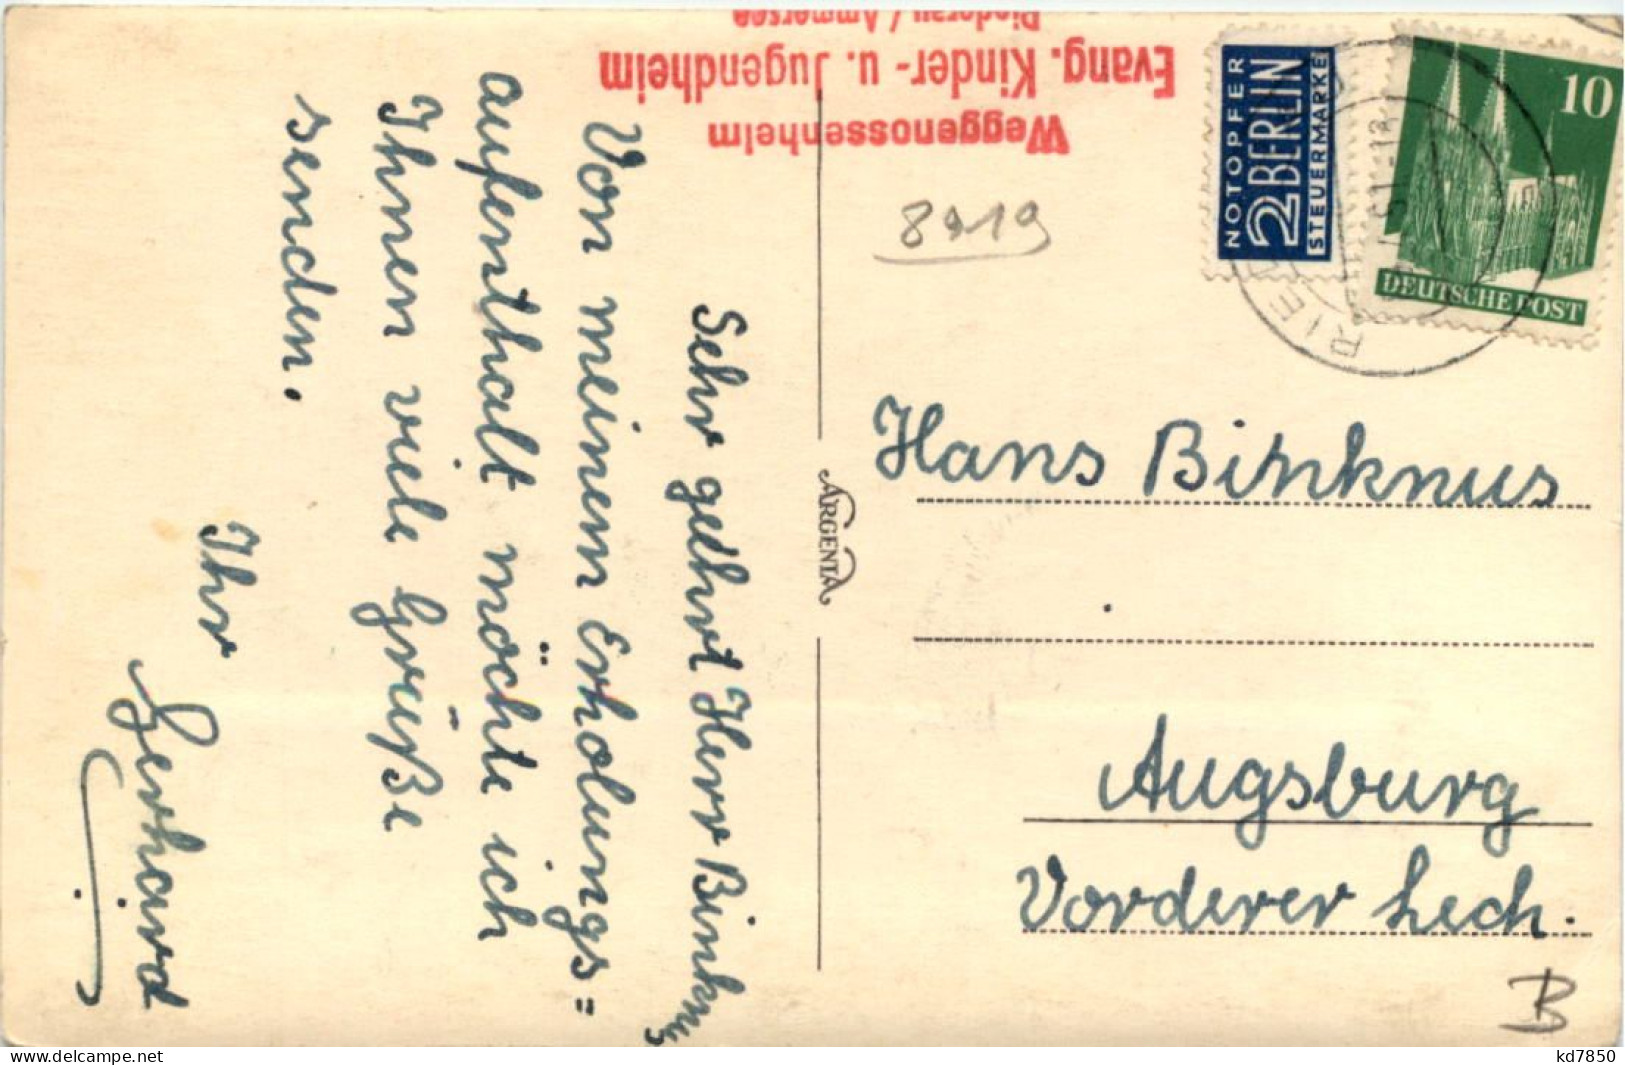 Weggenossenheim
Evang. Kinder- u. Jugendheim
Riederau / Ammersee
NOTOPFER
2 BERLIN
STEUERMARKE
10
DEUTSCHE POST
RIE
8919
Sehr geehrt Herr Binknus
Von meinem Erholungs=
aufenthalt möchte ich
Ihnen viele Grüße
senden.
Ihr
Gerhard
ARGENTA
Hans Binknus
Augsburg
Vorderer Lech.
B
delcampe.net
kd7850